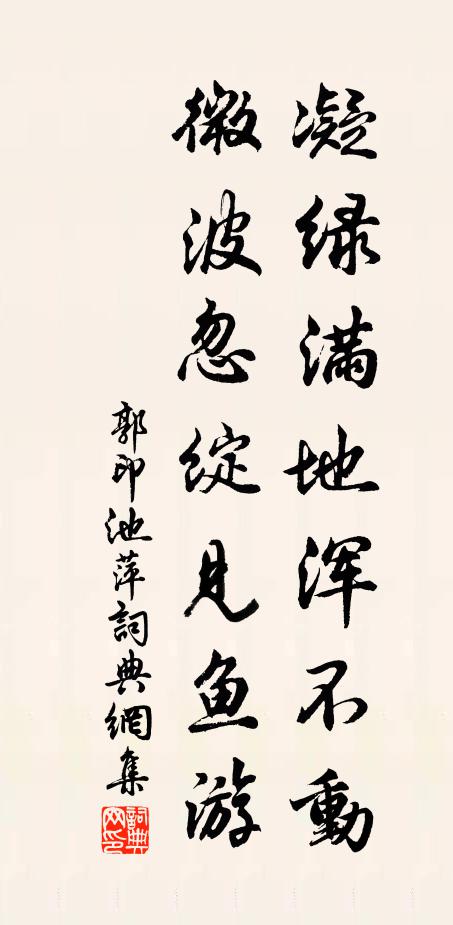 凝绿满地浑不動
微波忽绽见鱼游
郭印池萍詞典網集
詞典網印